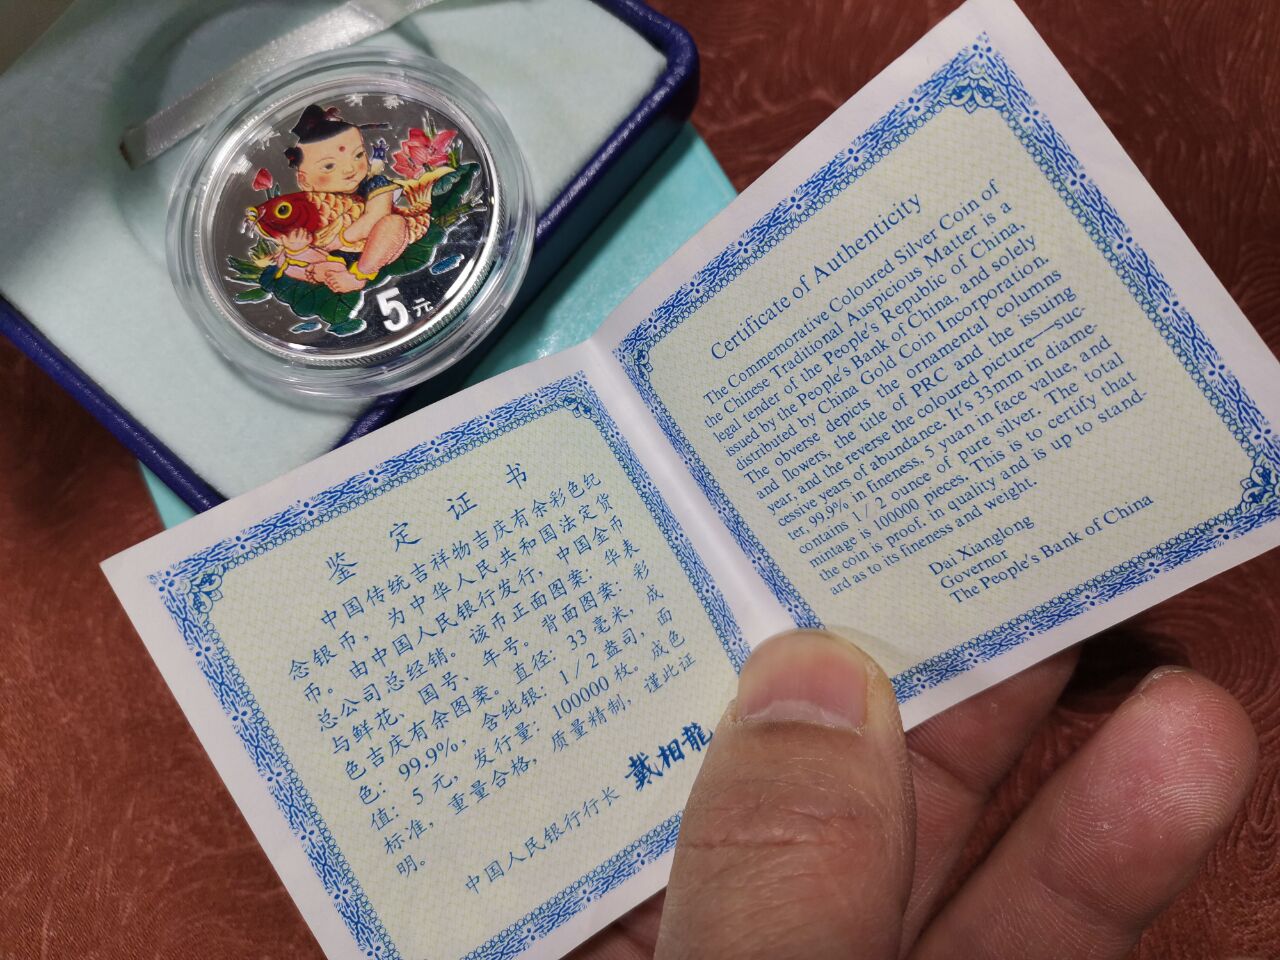 5元
鉴定证书
中国传统吉祥物吉庆有余彩色纪
念银币，为中华人民共和国法定货
币。由中国人民银行发行，中国金币
总公司总经销。该币正面图案：华表
与鲜花、国号、年号。背面图案：彩
色吉庆有余图案。直径：33毫米，成
色：99.9%，含纯银：1/2盎司，面
值：5元，发行量：100000枚。成色
标准，重量合格，质量精制，谨此证
明。
中国人民银行行长 戴相龍
Certificate of Authenticity
The Commemorative Coloured Silver Coin of
the Chinese Traditional Auspicious Matter is a
legal tender of the People's Republic of China,
issued by the People's Bank of China, and solely
distributed by China Gold Coin Incorporation.
The obverse depicts the ornamental columns
and flowers, the title of PRC and the issuing
year, and the reverse the coloured picture—suc-
cessive years of abundance. It's 33mm in diame-
ter, 99.9% in fineness, 5 yuan in face value, and
contains 1/2 ounce of pure silver. The total
mintage is 100000 pieces. This is to certify that
the coin is proof. in quality and is up to stand-
ard as to its fineness and weight.
Dai Xianglong
Governor
The People's Bank of China